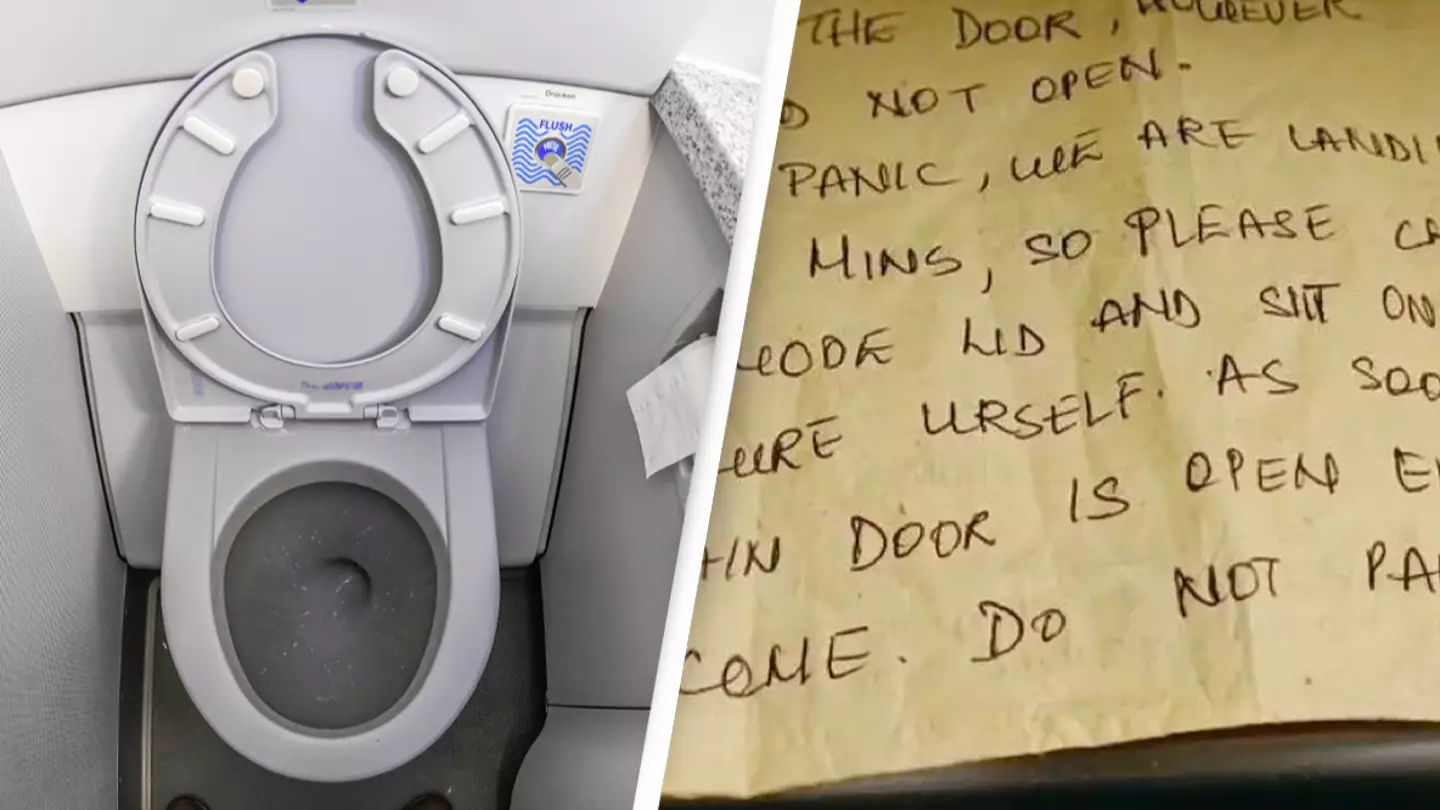 Drücken
FLUSH
THE DOOR, HOWEVER
D NOT OPEN.
PANIC, WE ARE LANDI
MINS, SO PLEASE C
ODE LID AND SIT ON
URE URSELF. AS SOO
IN DOOR IS OPEN E
COME. DO NOT PA